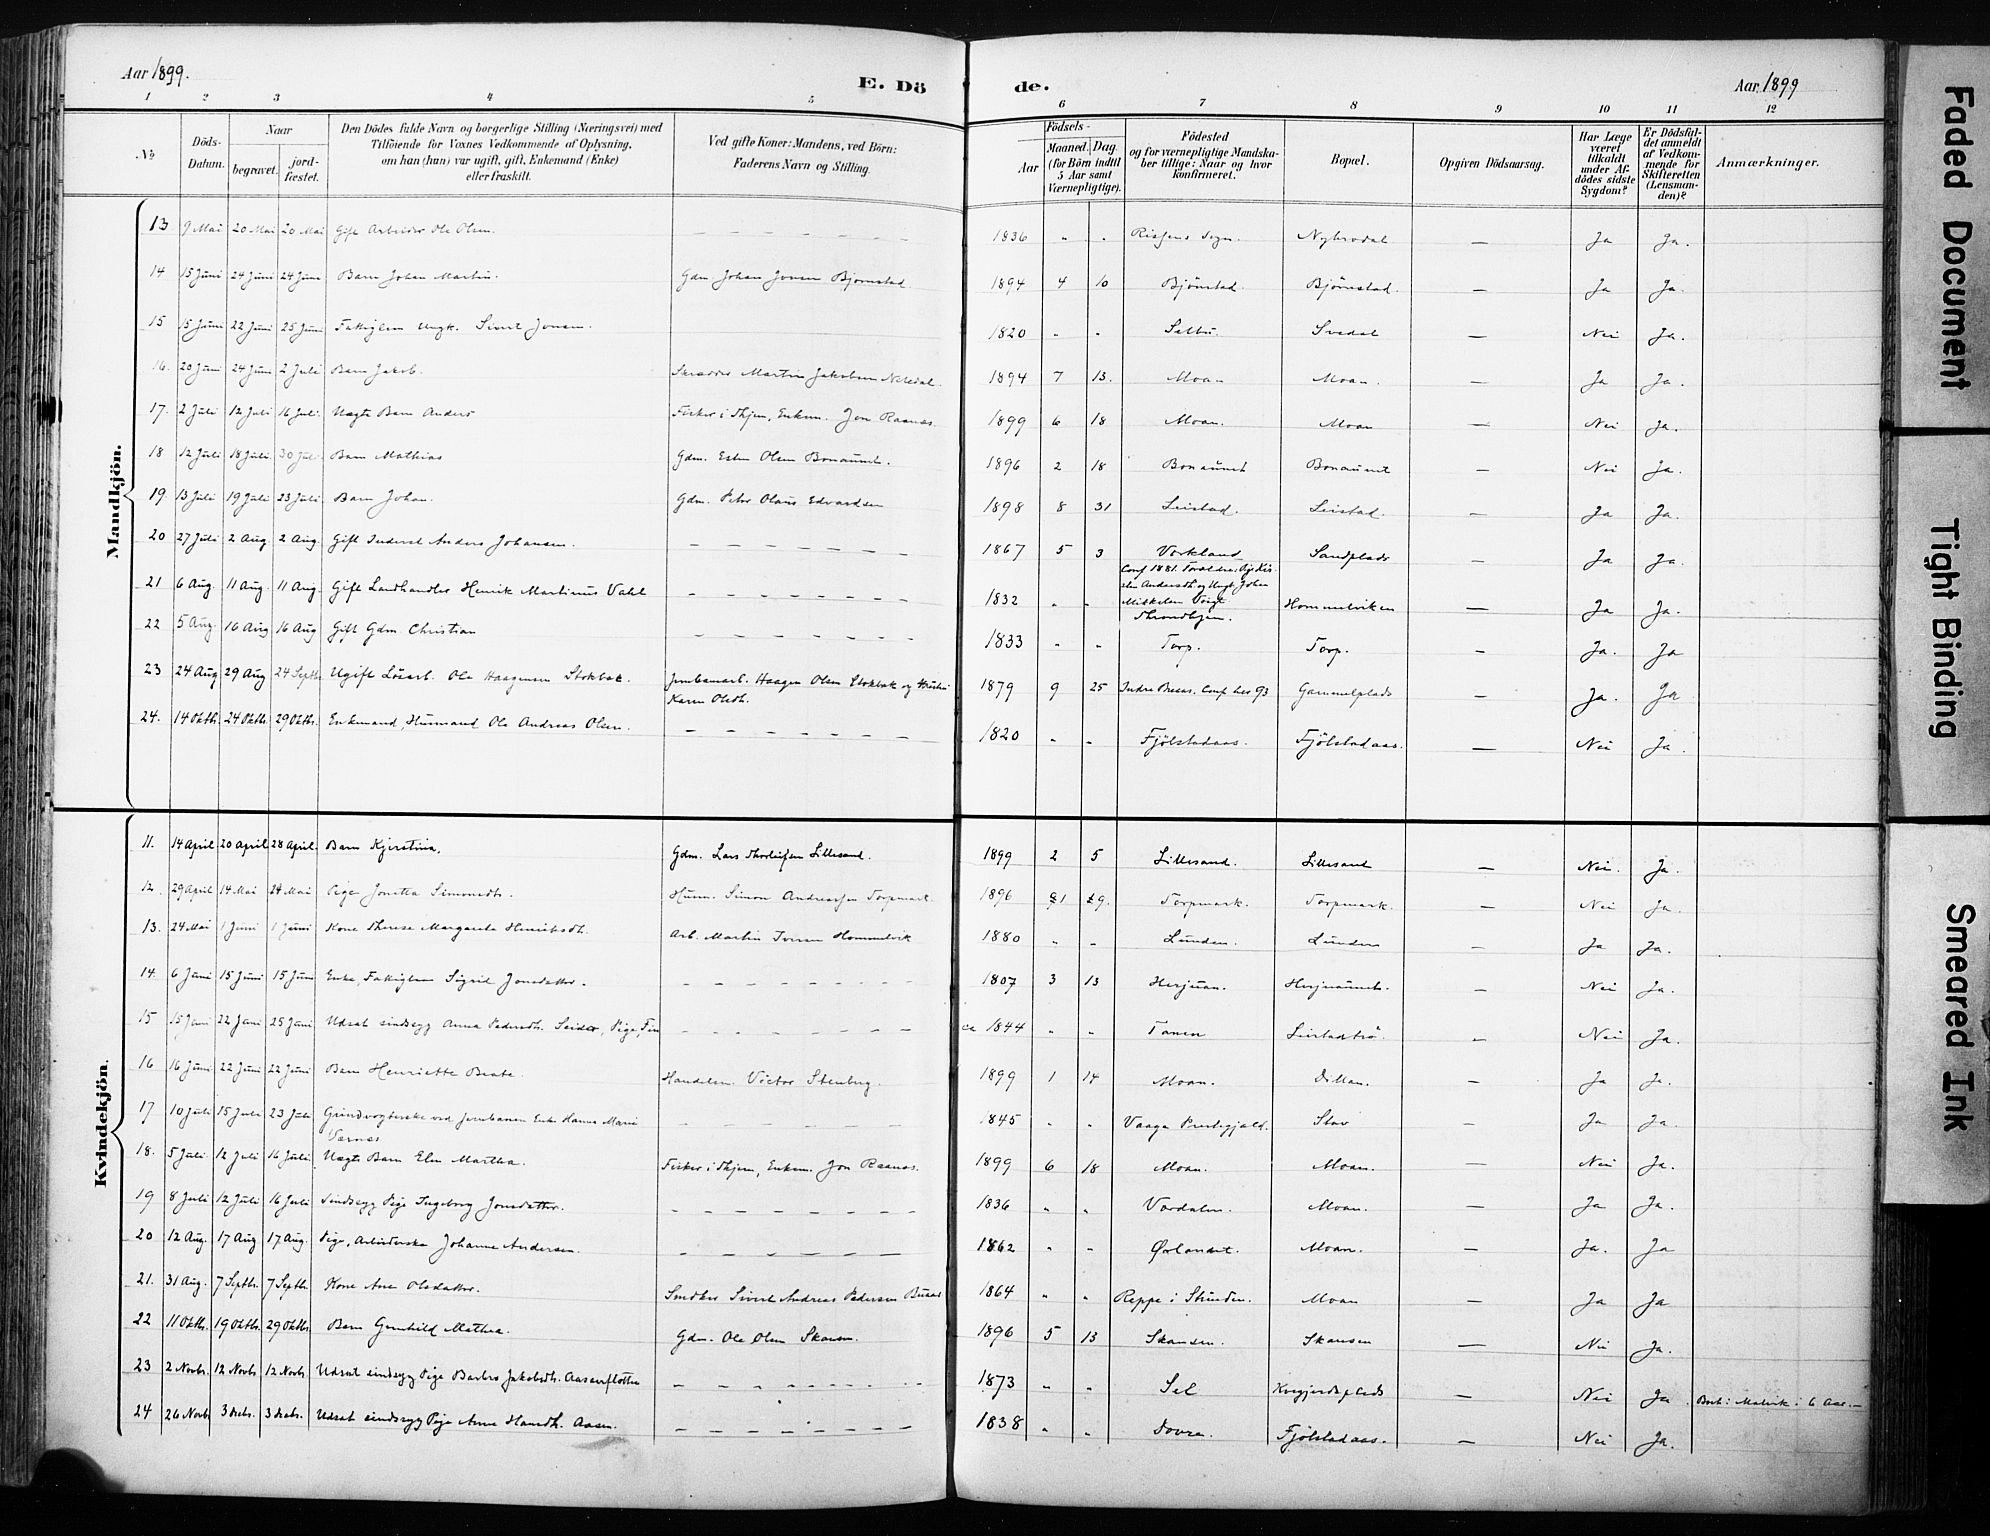 Aar 1899.
E. Dö de.
Aar 1899
1 2 3 4 5 6 7 8 9 10 11 12
No
Döds-Datum.
Naar
begravet.
jord-fæstet.
Den Dödes fulde Navn og borgerlige Stilling (Næringsvei) med
Tilföiende for Voxnes Vedkommende af Oplysning,
om han (hun) var ugift, gift, Enkemand (Enke)
eller fraskilt.
Ved gifte Koner: Mandens, ved Börn:
Faderens Navn og Stilling.
Födsels-
Aar
Maaned. Dag.
(for Börn indtil
5 Aar samt
Værnepligtige).
Födested
og for værnepligtige Mandska-
ber tillige: Naar og hvor
konfirmeret.
Bopæl.
Opgiven Dödsaarsag.
Har Læge
været
tilkaldt
under Af-
dödes sidste
Sygdom?
Er Dödsfal-
det anmeldt
af Vedkom-
mende for
Skifteretten
(Lensman-
den)?
Anmærkninger.
Mandkjön.
13 9 Mai 20 Mai 20 Mai Gift Arbeider Ole Olsen. 1836 " " Rissens Sogn. Nybrodal — Ja Ja.
14 15 Juni 24 Juni 24 Juni Barn Johan Martin. Gdm Johan Jonsen Bjørnstad. 1894 4 10 Bjørnstad. Bjørnstad. — Ja Ja.
15 15 Juni 22 Juni 25 Juni Fattiglem Ungk. Sivert Jonsen. 1820 " " Selbu. Svedal — Nei Ja.
16. 20 Juni 24 Juni 2 Juli Barn Jakob. Skrædder Martin Jakobsen 1894 7 13. Moan Moan. — Ja Ja.
17. 2 Juli 12 Juli 16 Juli. Uægte Barn Anders Fisker i Thjem, Enkem. Jon Raanes. 1899 6 18 Moan. Moan — Nei Ja.
18 12 Juli 18 Juli 30 Juli Barn Mathias Gdm. Esten Olsen Bonaunet. 1896 2 18 Bonaunet Bonaunet — Nei Ja.
19. 13 Juli 19 Juli 23 Juli Barn Johan. Gdm. Peter Olaus Edvardsen 1898 8 31 Leistad. Leistad. — Ja Ja.
20 27 Juli 2 Aug 2 Aug. Gift Inderst Anders Johansen. 1867 5 3 Vorkland Sandplads — Ja Ja.
Conf 1881. Forældre: Pige Kir-
sten Andersdh og Ungk. Johan
Mikkelsen Voigt
21 6 Aug. 11 Aug. 11 Aug. Gift Landhandler Henrik Martinus Vahl 1832 " " Throndhjem. Hommelviken — Ja Ja.
22 5 Aug. 16 Aug 16 Aug Gift Gdm. Christian 1833 " " Torp. Torp. — Ja. Ja
23 24 Aug 29 Aug 24 Septb. Ugift Løsarb. Ole Haagensen Stokbak. Jernbanearb. Haagen Olsen Stokbak og Hustru
Karen Olsdh. 1879 9 25 Indre Conf 93 Gammelplads — Ja. Ja
24. 14 Oktb. 24 Oktb. 29 Oktb. Enkemand, Husmand Ole Andreas Olsen. 1820 " " Fjølstadaas. Fjølstadaas. — Nei Ja.
Kvindekjön.
11. 14 April 20 April 28 April. Barn Kjerstina. Gdm. Lars Thorleifsen Lillesand. 1899 2 5 Lillesand. Lillesand — Nei. Ja.
12. 29 April 14 Mai 24 Mai Pige Jonetta Simonsdtr. Husm. Simon Andreassen Torpmark. 1896 Torpmark. Torpmark. — Nei Ja.
13. 24 Mai 1 Juni 1 Juni Kone Therese Margareta Henriksdh. Arb. Martin Iversen Hommelvik 1880 " " Lunden. Lunden — Ja Ja.
14. 6 Juni 15 Juni 15 Juni Enke, Fattiglem Sigrid Jonsdatter. 1807 3 13 Herjuan. Herjuaunet. — Nei Ja.
15 15 Juni 22 Juni 25 Juni Udsat sindssyg Anna Pedersdh. Seider, Pige, Fin ca 1844 " " Tanen Leistadtrø. — Nei Ja.
16 16 Juni 22 Juni 22 Juni Barn Henriette Beate. Handelsm. Victor Stenberg. 1899 1 14 Moan. — Ja Ja.
17 10 Juli 15 Juli 23 Juli Grindvogterske ved Jernbanen Enke Hanna Marie
Værnes 1845 " " Vaaga Prestegjæld. Stav — Ja Ja
18. 5 Juli. 12 Juli 16 Juli. Uægte Barn Elen Martha. Fisker i Thjem, Enkem. Jon Raanes. 1899 6 18 Moan. Moan. — Nei Ja.
19 8 Juli 12 Juli 16 Juli Sindssyg Pige Ingeborg Jonsdatter. 1836 " " Værdalen. Moan. — Ja Ja.
20 12 Aug. 17 Aug 17 Aug. Pige, Arbeiderske Johanne Andersen. 1862 " " Ørlandet. Moan. — Ja. Ja
21. 31 Aug. 7 Septb. 7 Septb. Kone Ane Olsdatter. Snedker Sivert Andreas Pedersen 1864 " " Reppe i Strinden. Moan — Ja Ja
22 11 Oktb. 19 Oktb. 29 Oktb. Barn Gunhild Mathea. Gdm. Ole Olsen Skansen. 1896 5 13 Skansen. Skansen — Nei Ja.
23 2 Novb. 12 Novb. 12 Novb. Udsat sindssyg Pige Barbro Jakobsdh. Aasenflotten 1873 " " Sel Kvegjerdsplads — Nei Ja. Boet i Malvik i 6 Aar.—
24 26 Novb. 3 Decb. 3 Decb. Udsat sindssyg Pige Anne Hansdh. Aasen. 1838 " " Dovre. Fjølstadaas. — Nei Ja.
Faded Document
Tight Binding
Smeared Ink